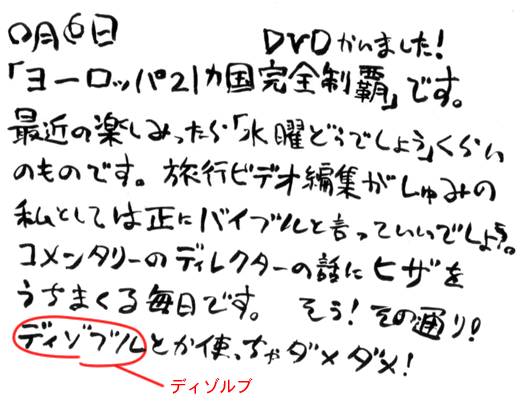 〇月6日　DVDかいました！
「ヨーロッパ21カ国完全制覇」です。
最近の楽しみったら「水曜どうでしょう」くらい
のものです。旅行ビデオ編集がしゅみの
私としては正にバイブルと言っていいでしょう。
コメンタリーのディレクターの話にヒザを
うちまくる毎日です。　そう！その通り！
ディゾブルとか使っちゃダメダメ！
ディゾルブ